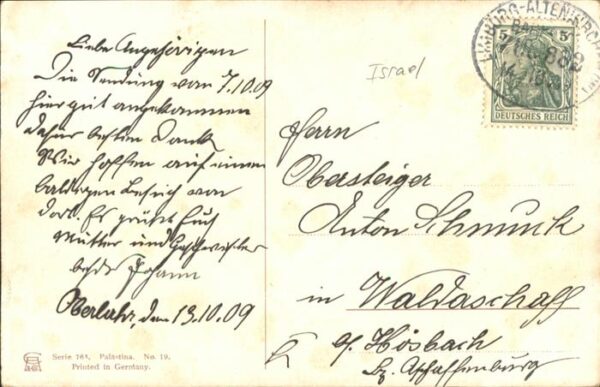 Liebe Angehörigen
Die Sendung vom 7.10.09
hier gut angekommen
daher besten Dank
Wir hoffen auf einen
baldigen Besuch von
dort. Es grüßt Euch
Mutter und Geschwister
Johann
Oberlahr, den 13.10.09
Israel
LIMBURG-ALTENKIRCHEN
5 5
DEUTSCHES REICH
Herrn
Obersteiger
Anton Schmuck
in Waldaschaff
Hösbach
Bz. Aschaffenburg
Serie 764, Palästina. No. 19.
Printed in Germany.